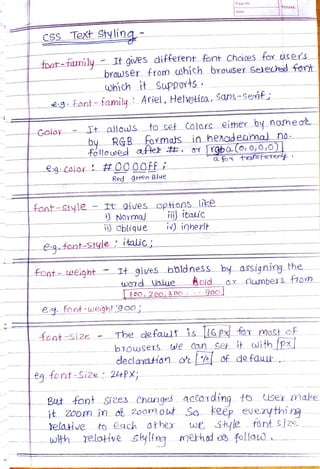 CSS Text Styling -
font-family - It gives different font choices for user's
browser from which browser selected font
which it supports.
e.g. font-family : Ariel, Helvetica, Sans-Serif;
Color - It allows to set colors either by name or
by RGB formats in hexadecimal no.
followed after #. or rgba(0,0,0,0)
a for
e.g. color : #0000ff ;
Red green Blue
font-style - It gives options like
i) Normal iii) italic
ii) Oblique iv) inherit
e.g. font-style : italic;
font-weight - It gives boldness by assigning the
word value bold or numbers from
100, 200, 300 ---- 900
e.g. font-weight : 900;
font-size - The default is 16px for most of
browsers we can set it with px
declaration or % of default.
eg font-size : 24px;
But font sizes changes according to user make
it zoom in or zoom out So keep everything
relative to each other we style font size
with relative styling method as follow.